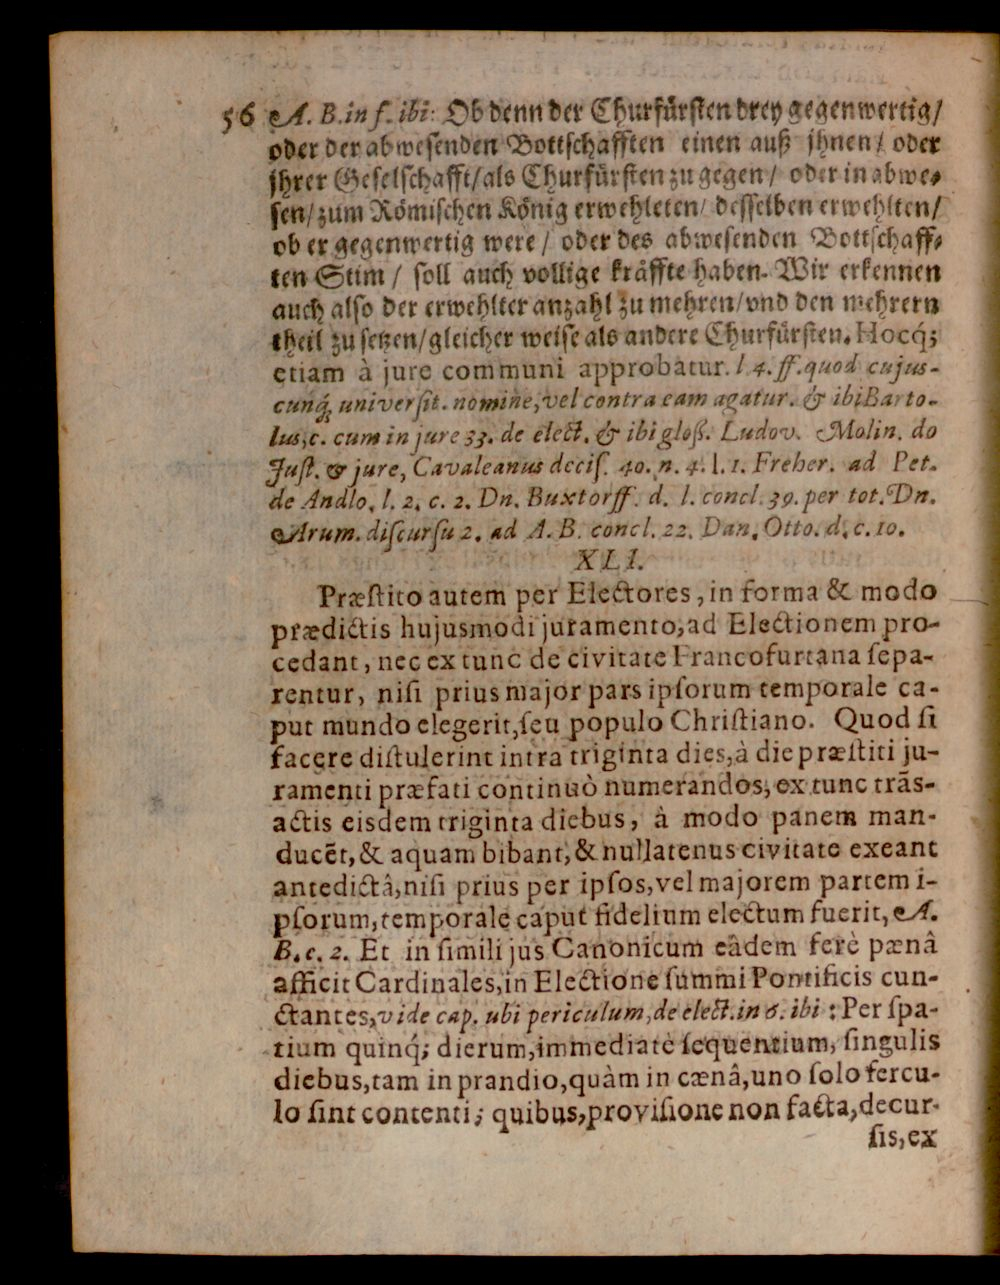 56 A. B. in f. ibi: Ob denn der Churfürsten drey gegenwertig/
oder der abwesenden Bottschafften einen auß jhnen/ oder
jhrer Geselschafft/als Churfürsten zu gegen/ oder in abwe-
sen/zum Römischen König erwehleten/ desselben erwehlten/
ob er gegenwertig were/ oder des abwesenden Bottschaff-
ten Stim/ soll auch vollige kräffte haben. Wir erkennen
auch also der erwehlter anzahl zu mehren/vnd den mehrern
theil zu setzen/gleicher weise als andere Churfürsten. Hocq́;
etiam à jure communi approbatur. l. 4. ff. quod cujus-
cunq́; universit. nomine, vel contra eam agatur. & ibi Barto-
lus, c. cum in jure 33. de elect. & ibi gloß. Ludov. Molin. do
Just. & jure, Cavaleanus decis. 40. n. 4. l. 1. Freher. ad Pet.
de Andlo, l. 2. c. 2. Dn. Buxtorff. d. l. concl. 39. per tot. Dn.
Arum. discursu 2. ad A. B. concl. 22. Dan. Otto. d. c. 10.
XLI.
Præstito autem per Electores, in forma & modo
prædictis hujusmodi juramento, ad Electionem pro-
cedant, nec ex tunc de civitate Francofurtana sepa-
rentur, nisi prius major pars ipsorum temporale ca-
put mundo elegerit, seu populo Christiano. Quod si
facere distulerint intra triginta dies, à die præstiti ju-
ramenti præfati continuò numerandos, ex tunc trãs-
actis eisdem triginta diebus, à modo panem man-
ducẽt, & aquam bibant, & nullatenus civitate exeant
antedictâ, nisi prius per ipsos, vel majorem partem i-
psorum, temporale caput fidelium electum fuerit, A.
B. c. 2. Et in simili jus Canonicum eâdem ferè pænâ
afficit Cardinales, in Electione summi Pontificis cun-
ctantes, vide cap. ubi periculum, de elect. in 6. ibi: Per spa-
tium quinq́; dierum, immediatè sequentium, singulis
diebus, tam in prandio, quàm in cænâ, uno solo fercu-
lo sint contenti; quibus, provisione non facta, decur-
sis, ex